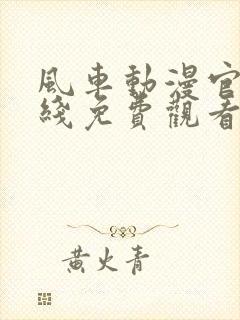 風車動漫官
綫免費觀看
黃火青